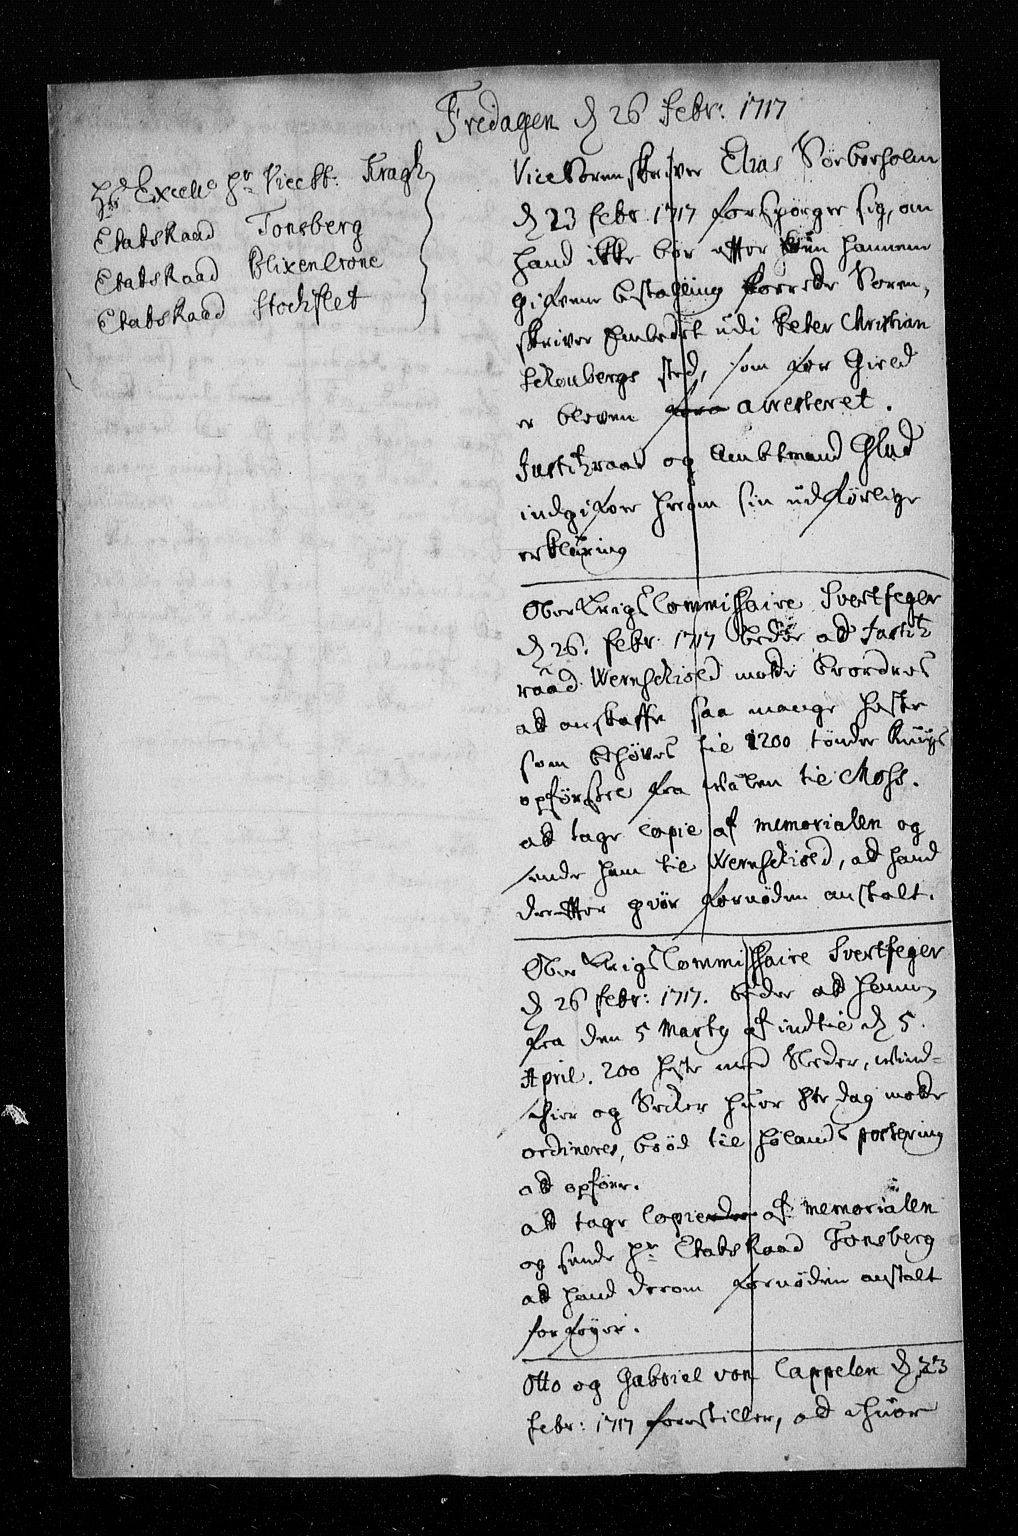 Fredagen d 26 Febr: 1717
Hs Excell: Hr Vicest: Kragh
Etatsraad Tonsberg
Etatsraad Blixencrone
Etatsraad Stockflet
Vice Sorenskriver Elias Sørberholm
d 23 febr: 1717 forspørger sig, om
hand ikke bør efter hannem
gifvene bestalling forrette Soren,
skriver Embedet udi Peter Christian
Schoubergs sted, som for Gield
er bleven arresteret.
Justitzraad og Ambtmand Glud
indgifver herom sin udførlige
erklæring
Ober Krigs Commissaire Svertfeger
d 26. febr: 1717 beder ad Justitz
raad Wernschiold motte beordres
att anskaffe saa mange heste
som behøves til 1200 tønder
opførsel fra til Moss.
att tage Copie af memorialen og
sende ham til Wernschiold, ad hand
derefter giør fornøden anstalt.
Ober Krigs Commissaire Svertfeger
d 26 febr: 1717. beder att hannem
fra den 5 Marty af indtil d 5.
April. 200 heste med Sleder,
og Secker huer dag motte
ordineres, brød til Hølands postering
att opføre.
att tage Copie af memorialen
og sende Hr Etats Raad Tonsberg
att hand derom fornøden anstalt
forføyer.
Otto og Gabriel von Cappelen d 23
febr: 1717 forestiller, ad huor